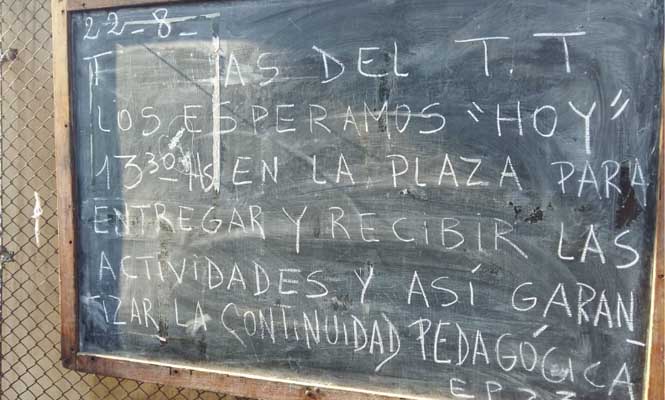 22-8-
AS DEL T.T.
LOS ESPERAMOS "HOY"
13³⁰ Hs EN LA PLAZA PARA
ENTREGAR Y RECIBIR LAS
ACTIVIDADES Y ASÍ GARAN
TIZAR LA CONTINUIDAD PEDAGÓGICA